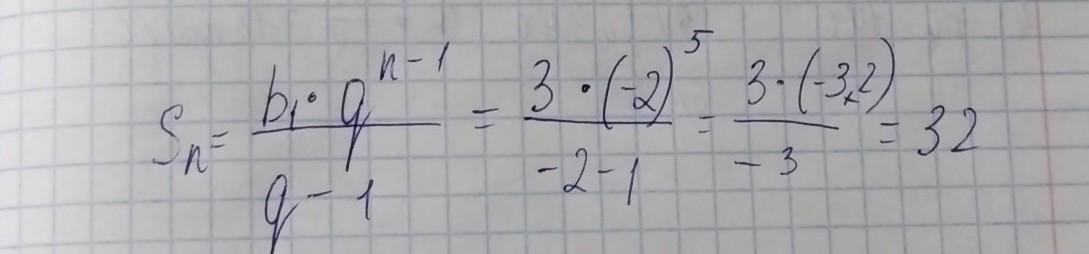 Sₙ = (b₁ · q^(n-1))/(q - 1) = (3 · (-2)^5)/(-2-1) = (3 · (-32))/(-3) = 32